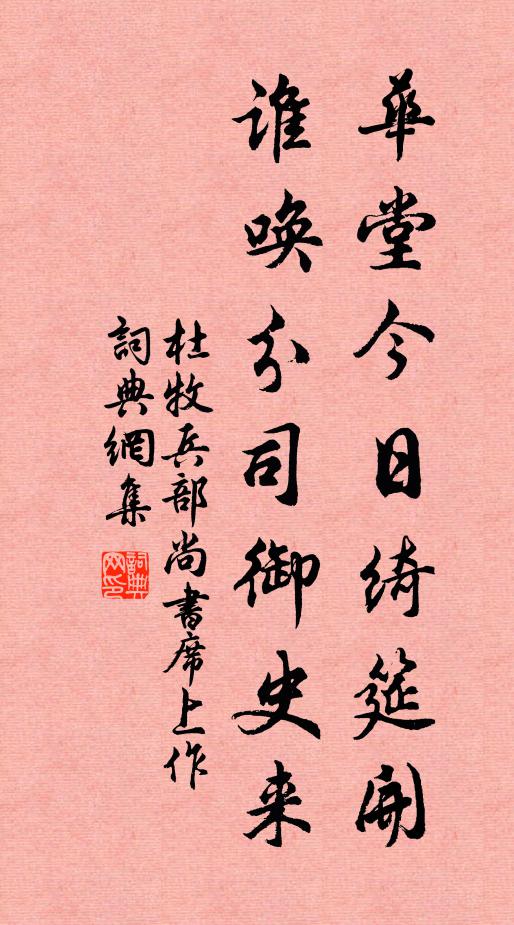 華堂今日綺筵開
誰喚分司御史来
杜牧兵部尚書席上作
詞典網集
詞典网印